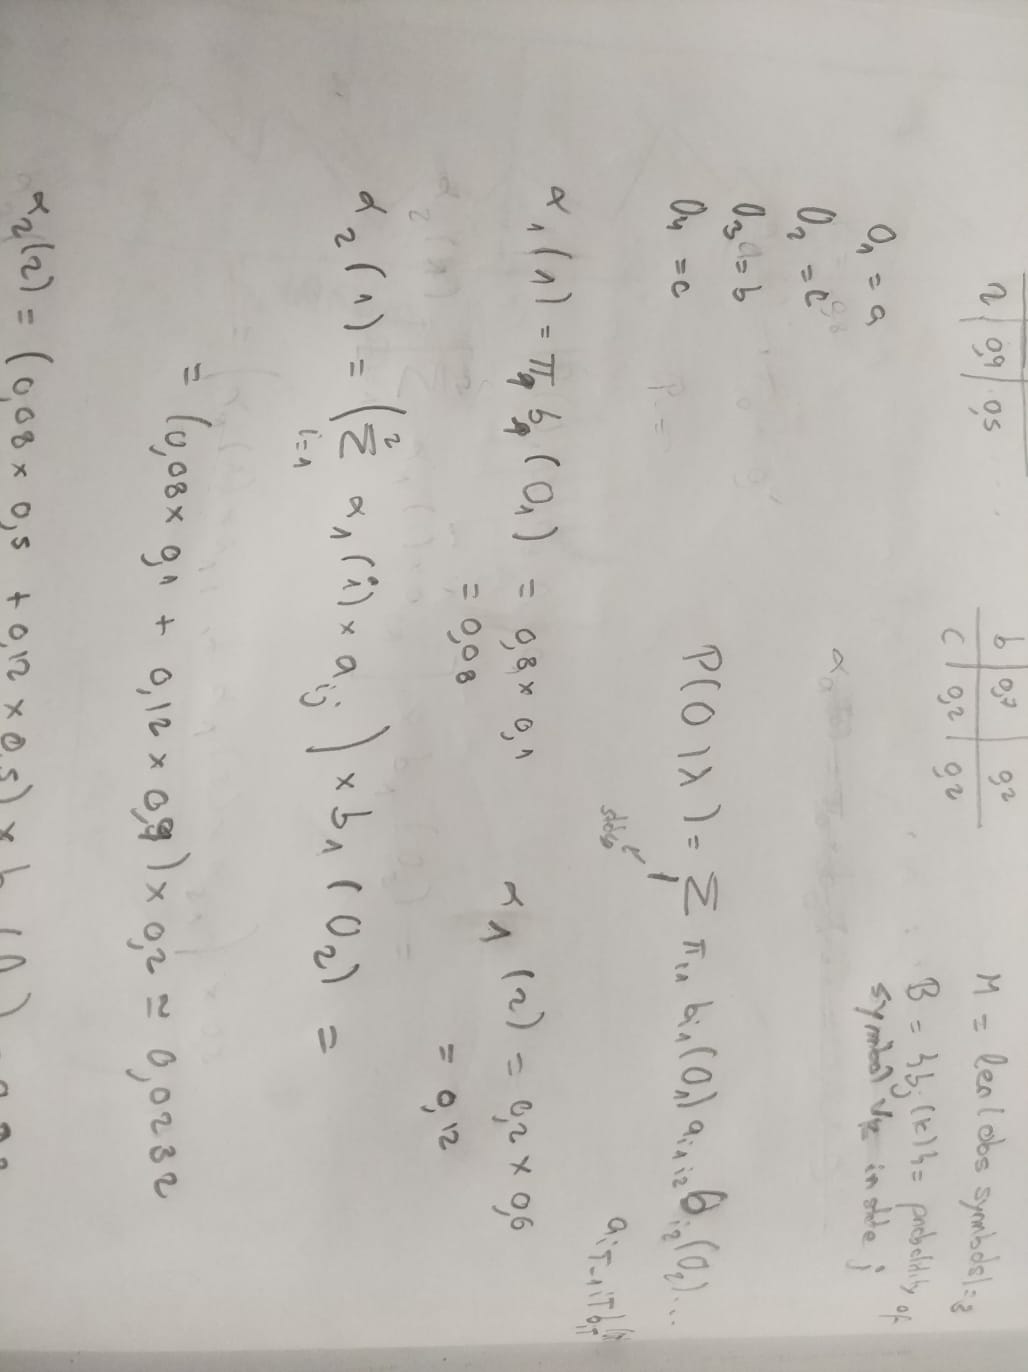 2 | 0,9 | 0,5
b | 0,7 | 0,2
c | 0,2 | 0,2
M = len(obs symbols) = 3
B = {bj(k)} = probability of
symbol Vk in state j
O1 = a
O2 = c
O3 = b
O4 = c
P(O|λ) = Σ πi1 bi1(O1) ai1i2 bi2(O2)...
aiT-1iT biT
α1(1) = π1 b1(O1) = 0,8 × 0,1
= 0,08
α1(2) = 0,2 × 0,6
= 0,12
α2(1) = (Σ α1(i) × aij) × b1(O2) =
2
i=1
= (0,08 × 0,1 + 0,12 × 0,9) × 0,2 ≃ 0,0232
α2(2) = (0,08 × 0,5 + 0,12 × 0,5) ×